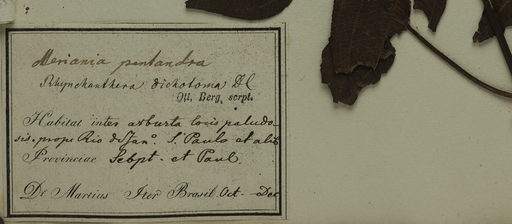 Meriania pentandra
Rhynchanthera dichotoma DC
Ott. Berg. scrpt.
Habitat inter arbusta locis paludo-
sis prope Rio d. Jan°. S. Paulo et alib
Provinciae Sebpt. et Paul.
Dr Martius Iter Brasil. Oct - Dec